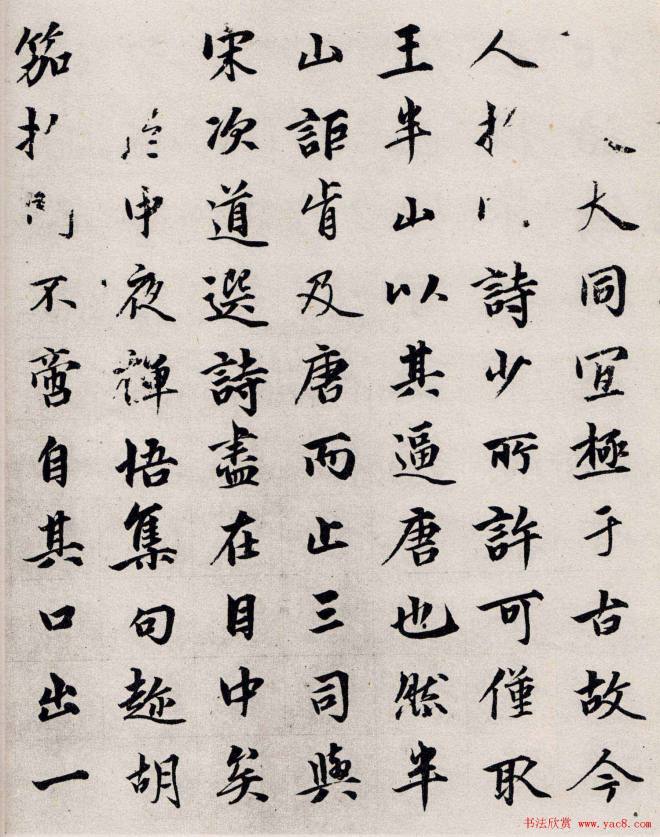 大同宜極于古故今
人詩少所許可僅取
王半山以其逼唐也然半
山詎肯及唐而止三司與
宋次道選詩盡在目中矣
夜禪悟集句胡
笳不啻自其口出一
书法欣赏 www.yac8.com